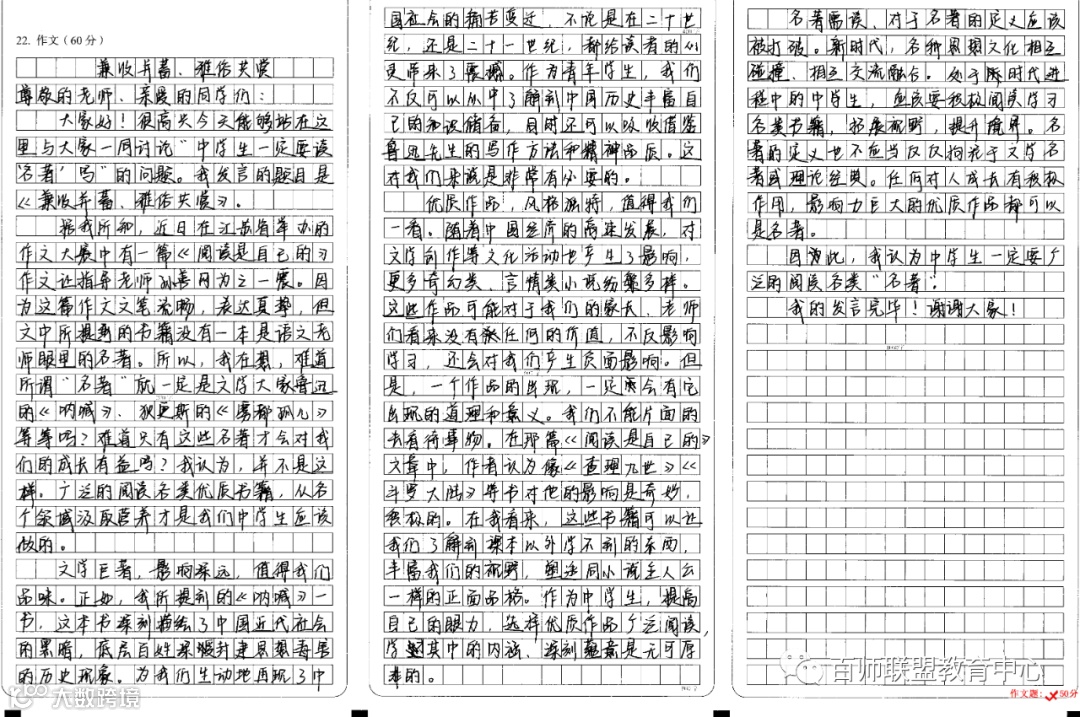 22. 作文（60分）
兼收并蓄、雅俗共赏
尊敬的老师、亲爱的同学们：
大家好！很高兴今天能够站在这
里与大家一同讨论“中学生一定要读
‘名著’吗”的问题。我发言的题目是
《兼收并蓄、雅俗共赏》。
据我所知，近日在江苏省举办的
作文大展中有一篇《阅读是自己的》
作文让指导老师
网为之一震。因
为这篇作文文笔流畅，表达真挚，但
文中所提到的书籍没有一本是语文老
师眼里的名著。所以，我在想，难道
所谓“名著”就一定是文学大家鲁迅
的《呐喊》、狄更斯的《雾都孤儿》
等等吗？难道只有这些名著才会对我
们的成长有益吗？我认为，并不是这
样。广泛的阅读各类优质书籍，从各
个领域汲取营养才是我们中学生应该
做的。
文学巨著，影响深远，值得我们
品味。正如，我所提到的《呐喊》一
书，这本书深刻描绘了中国近代社会
的黑暗，底层百姓深受封建思想毒害
的历史现象。为我们生动地再现了中
国社会的痛苦变迁，不论是在二十世
纪，还是二十一世纪，都给读者的心
灵带来了震撼。作为青年学生，我们
不仅可以从中了解到中国历史丰富自
己的知识储备，同时还可以吸收借鉴
鲁迅先生的写作方法和精神品质。这
对我们来说是非常有必要的。
优质作品，风格独特，值得我们
一看。随着中国经济的高速发展，对
文学创作等文化活动也产生了影响，
更多奇幻类、言情类小说纷繁多样。
这些作品可能对于我们的家长、老师
们看来没有任何的价值，不仅影响
学习，还会对我们产生负面影响。但
是，一个作品的出现，一定会有它
出现的道理和意义。我们不能片面的
去看待事物。在那篇《阅读是自己的》
文章中，作者认为像《查理九世》《
斗罗大陆》等书对他的影响是奇妙，
积极的。在我看来，这些书籍可以让
我们了解到课本以外学不到的东西，
丰富我们的视野，塑造同小说主人公
一样的正面品格。作为中学生，提高
自己的眼力，选择优质作品广泛阅读，
学习其中的内涵、深刻意义是无可厚
非的。
名著需读，对于名著的定义应该
被打破。新时代，各种思想文化相互
碰撞、相互交流融合。处于新时代进
程中的中学生，应该要积极阅读学习
各类书籍，拓展视野，提升境界。名
著的定义也不应当仅仅拘泥于文学名
著或理论经典。任何对人成长有积极
作用，影响力巨大的优质作品都可以
是名著。
因为此，我认为中学生一定要广
泛的阅读各类“名著”；
我的发言完毕！谢谢大家！
百师联盟教育中心
作文题：50分
大数跨境